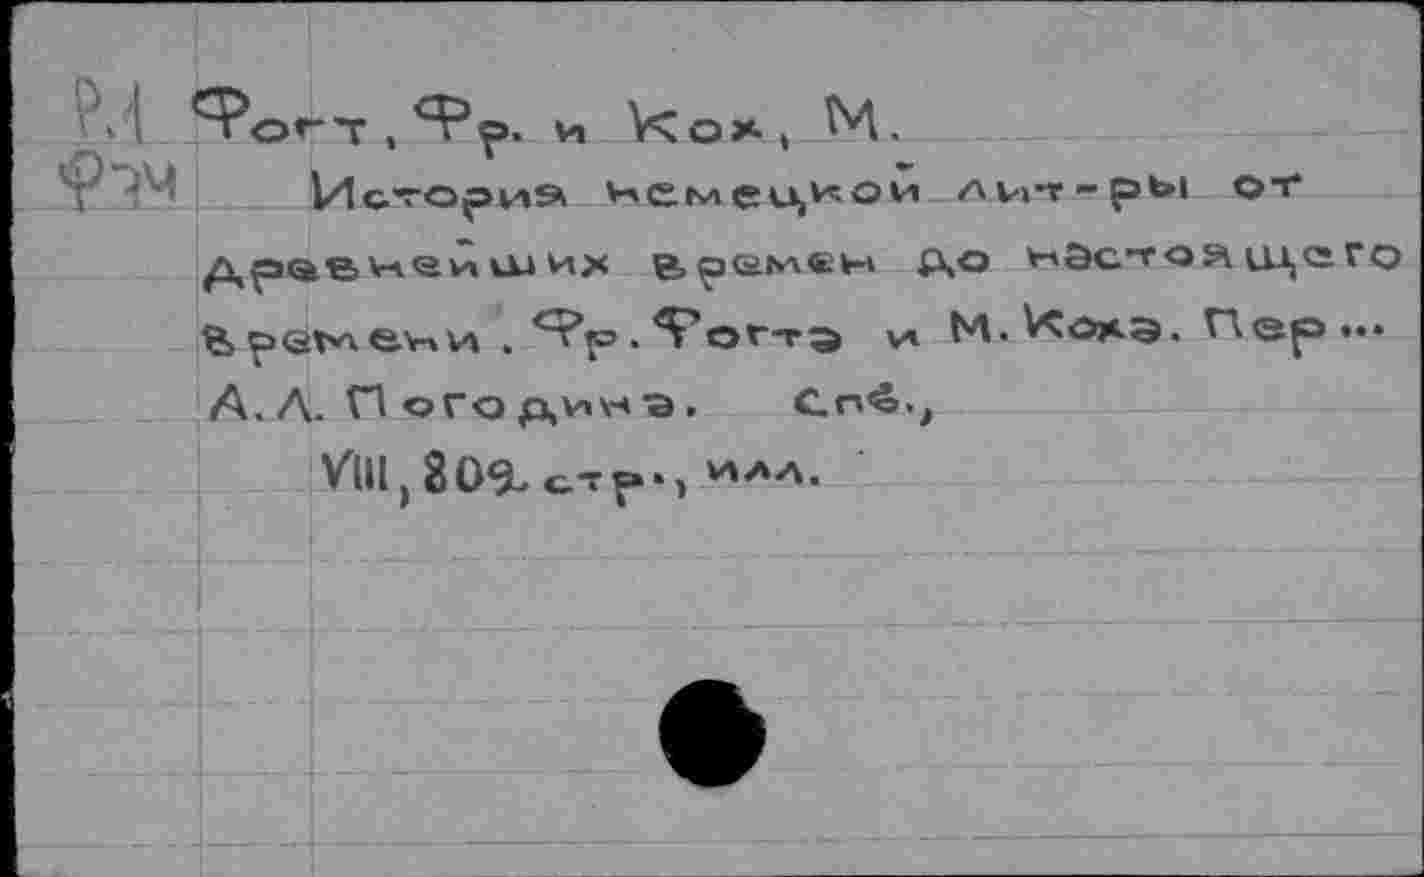 Фогт, Фр. и Кох, М.
История немецкой лит-ры от
древнейших времен до настоящего
времени. Фр. Фогта и М. Коха. Пер...
А. Л. Погодина. Спб.,
VIII, 802 стр., илл.